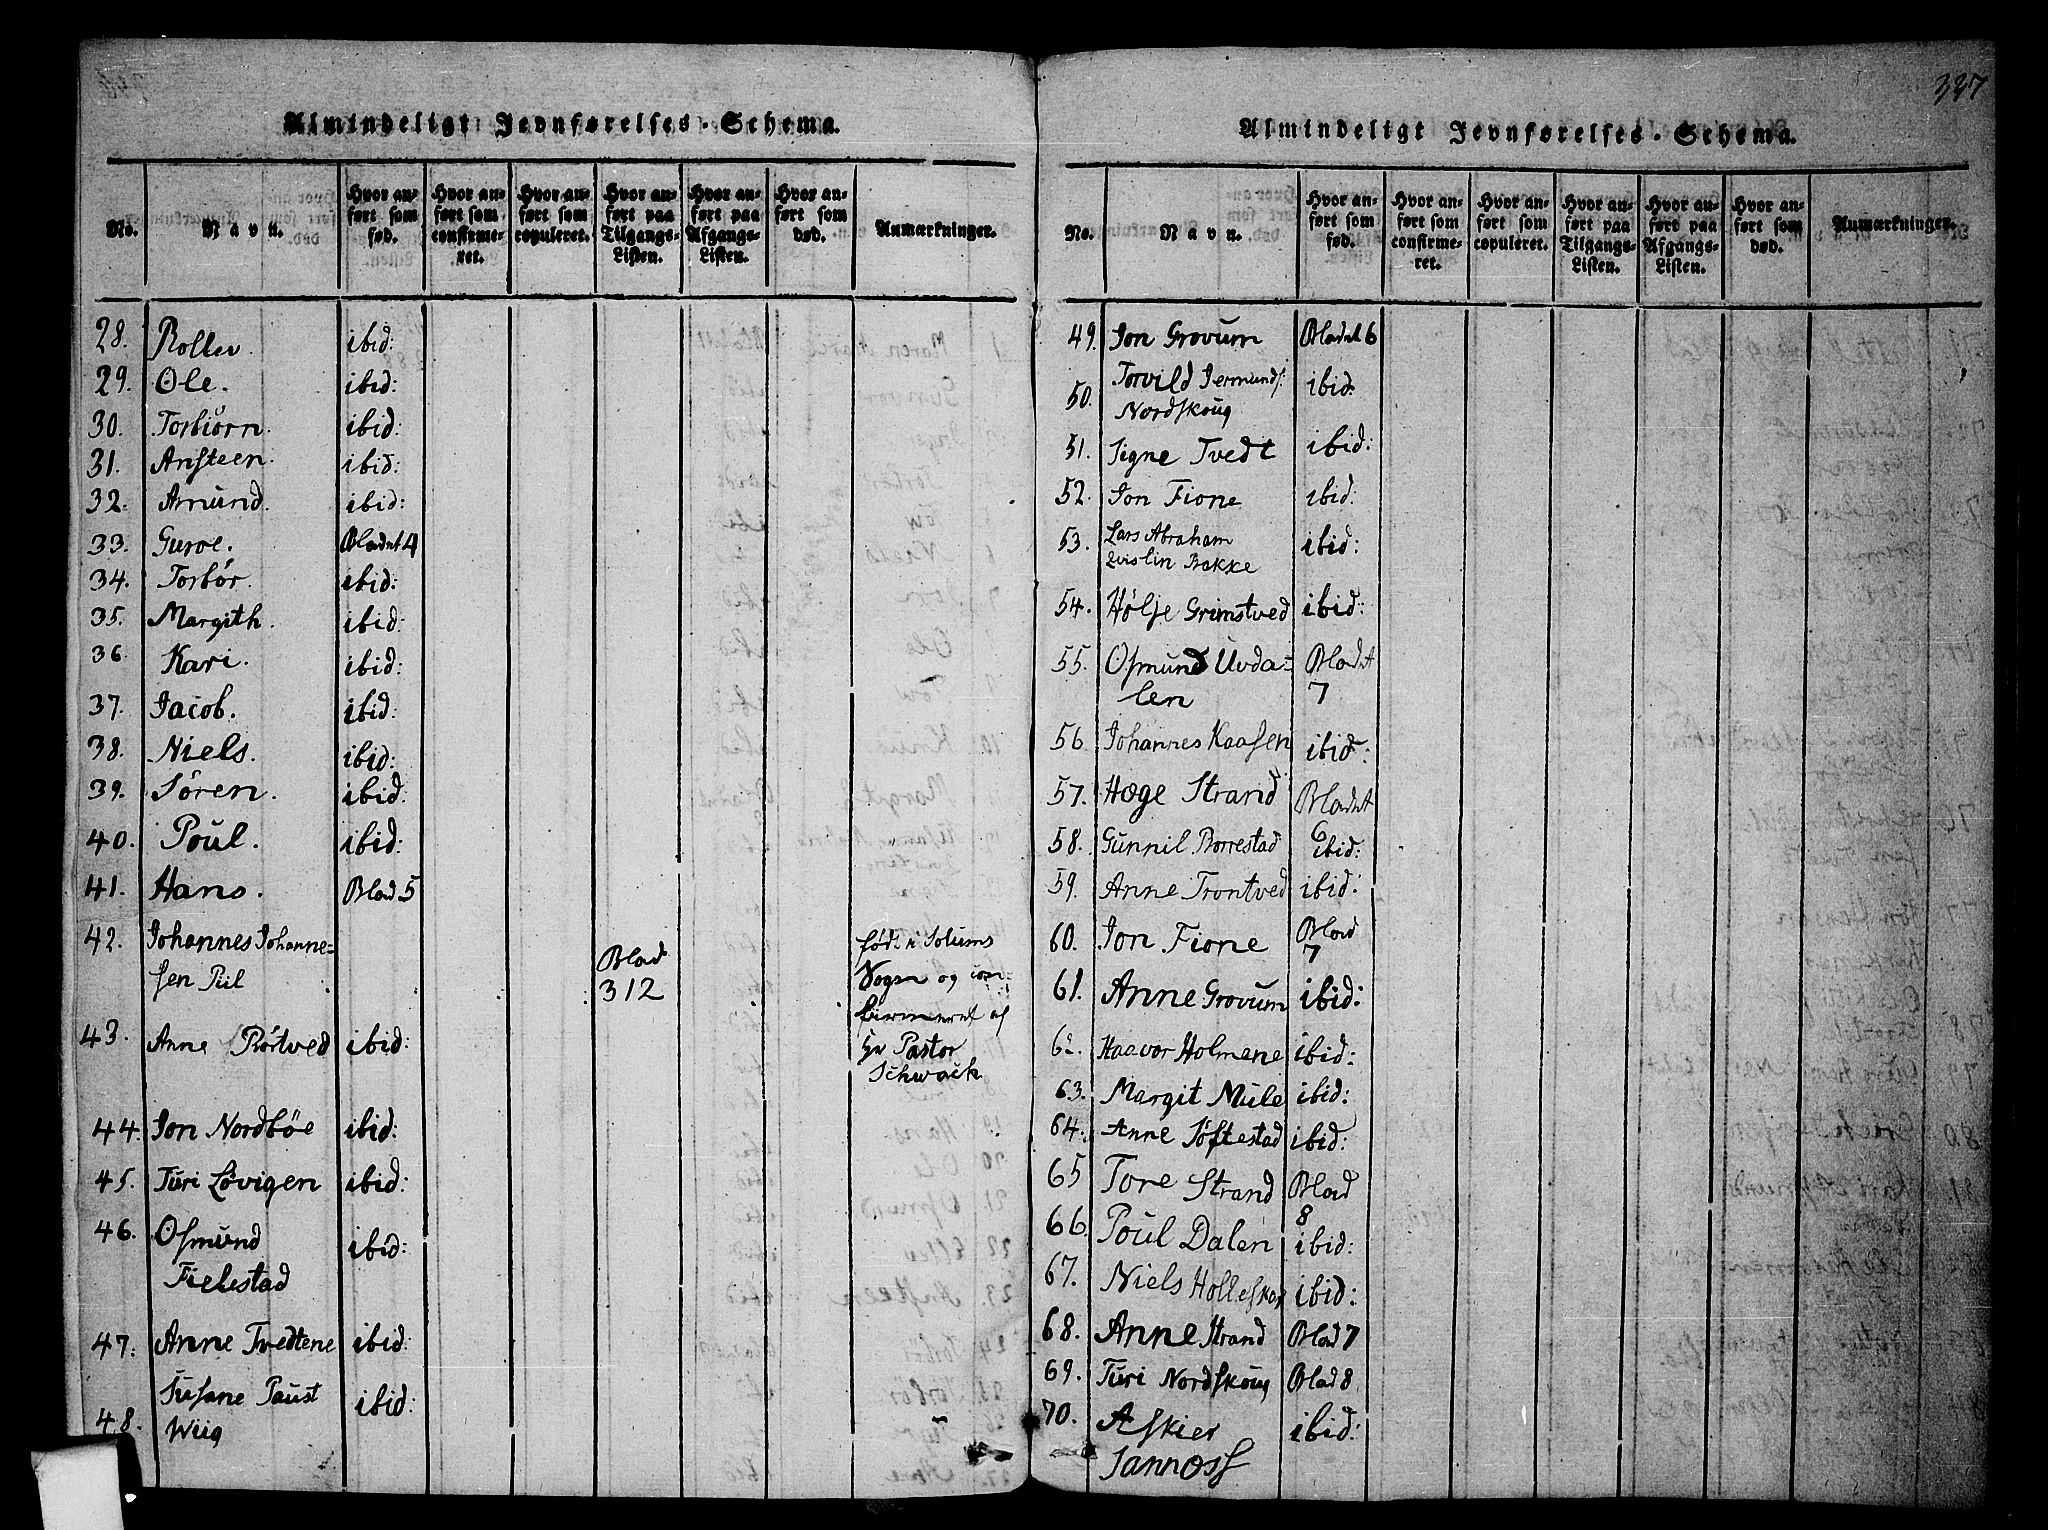 Almindeligt Jevnførelses-Schema.
No. Navn. Hvor anført som fød. Hvor anført som confirmeret. Hvor anført som copuleret. Hvor anført paa Tilgangs-Listen. Hvor anført paa Afgangs-Listen. Hvor anført som død. Anmærkninger.
28. Rollev. ibid:
29. Ole. ibid:
30. Torbiörn. ibid:
31. Ansteen. ibid:
32. Amund. ibid:
33. Guroe. Bladet 4
34. Torbör. ibid:
35. Margith. ibid:
36 Kari. ibid:
37. Jacob. ibid:
38. Niels. ibid:
39. Sören. ibid.
40. Poul. ibid:
41. Hans. Blad 5
42. Johannes Johanne=
sen Piil
Blad
312
født i Solums
Sogn og con-
firmeret af
Hr Pastor
Schwack
43. Anne Röstved ibid:
44. Jon Nordböe ibid:
45. Turi Lövigen ibid:
46. Osmund
Fielestad ibid:
47. Anne Tvedtene ibid:
48. Susane Paust
Wiig ibid:
337
Almindeligt Jevnførelses-Schema.
No. Navn. Hvor anført som fød. Hvor anført som confirmeret. Hvor anført som copuleret. Hvor anført paa Tilgangs-Listen. Hvor anført paa Afgangs-Listen. Hvor anført som død. Anmærkninger.
49. Jon Grovum Bladet 6
50. Torvild Jermunds:
Nordskoug ibid:
51. Signe Tvedt ibid:
52. Jon Fione ibid.
53. Lars Abraham
Qvislin Bakke ibid:
54. Hölje Grimstved ibid:
55. Osmund Uvda=
len Bladet
7
56 Johannes Kaasen ibid:
57. Hæge Strand Bladet
6
58. Gunnil Borrestad ibid:
59. Anne Trontved ibid:
60. Jon Fione Blad
7
61. Anne Grovum ibid:
62. Haavor Holmene ibid:
63. Margit Mule ibid:
64. Anne Söftestad ibid:
65 Tore Strand Blad
8
66. Poul Dalen ibid:
67. Niels Holleskar ibid:
68. Anne Strand Blad 7
69. Turi Nordskoug Blad 8
70. Askier
Jannoss ibid: